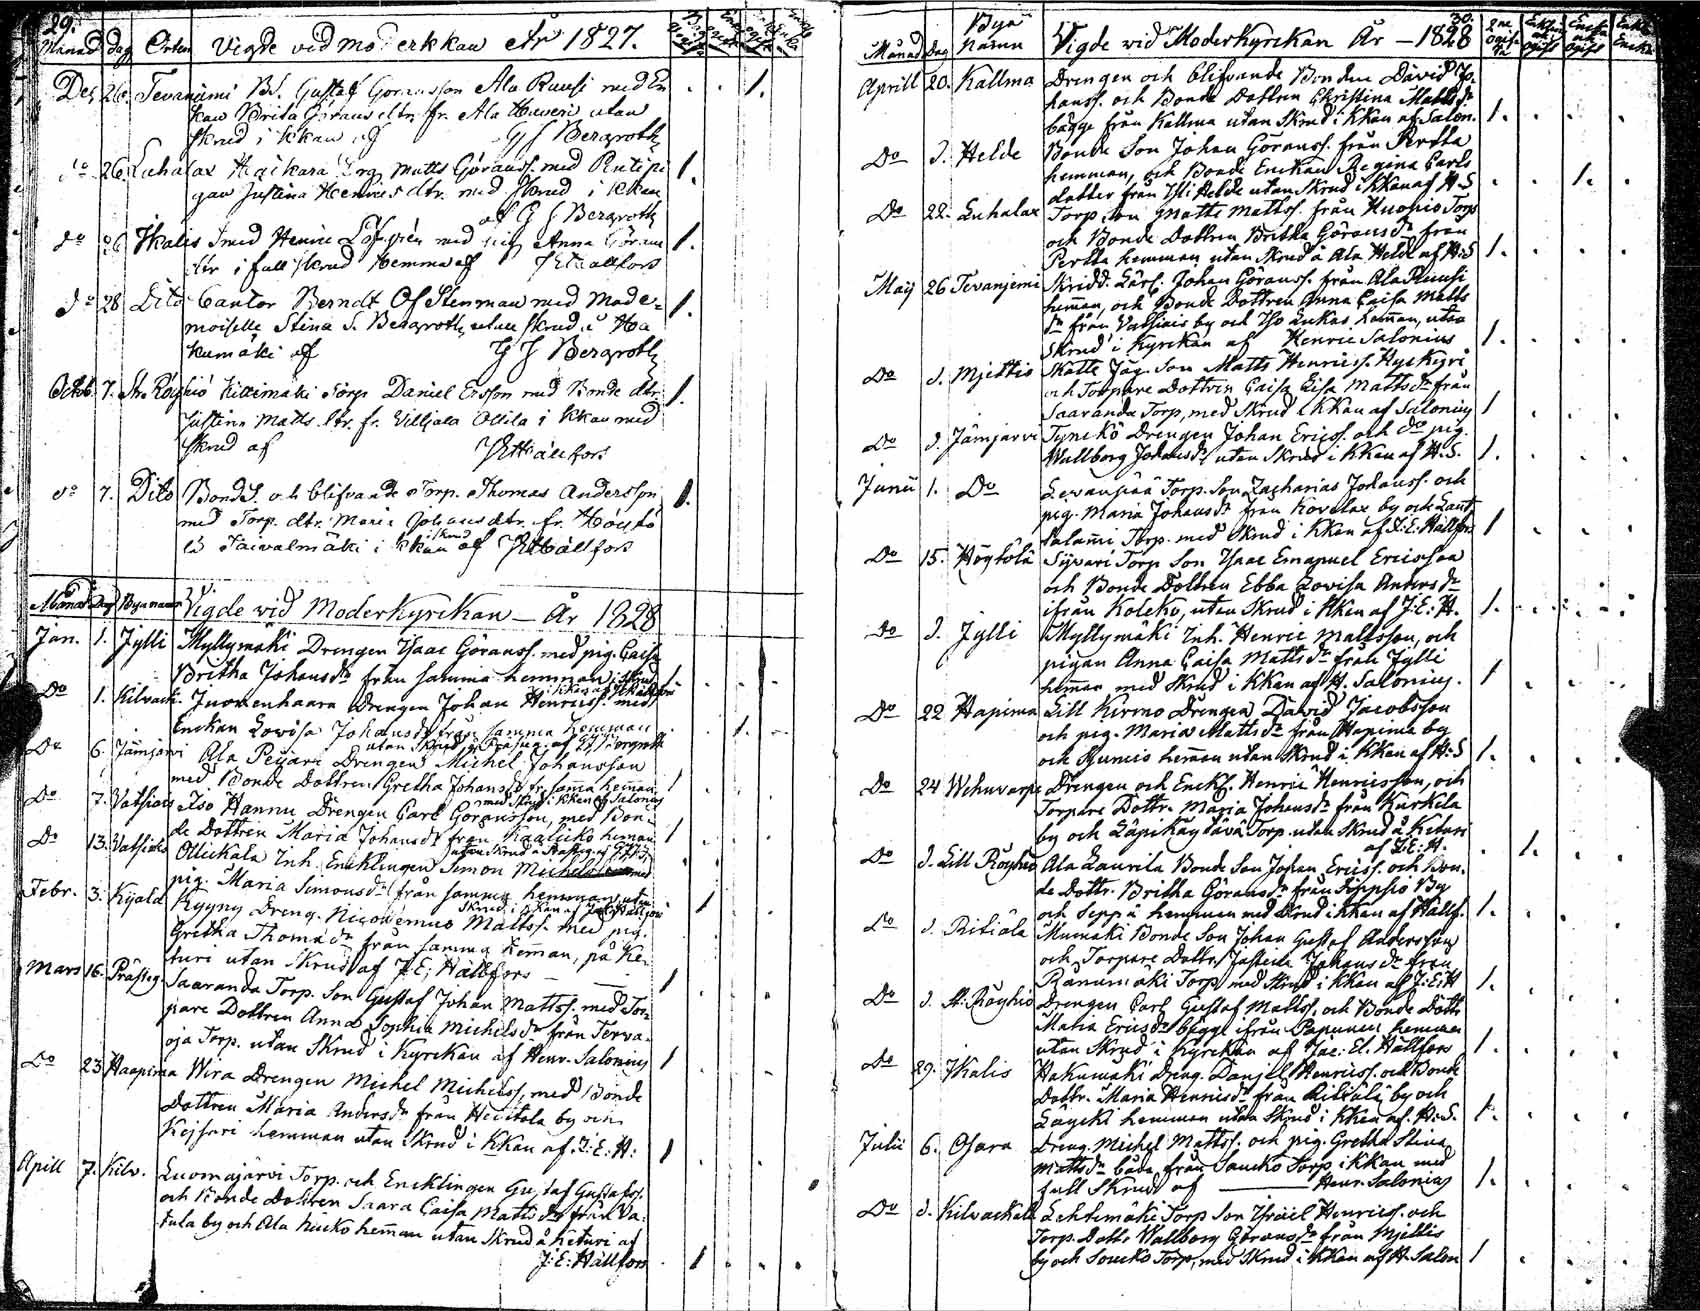 29.
Månad dag Orten Vigde vid moderkkan År 1827.
Dec 26. Tevaniemi Bd. Gustaf Göransson Ala Ruusi med En
kan Brita Göransdtr fr. Ala Haveri utan
skrud i kkan af G J Bergroth 1.
do 26. Luhalax Haikara Drg Matts Göranss. med Rutipi
gan Justina Henricsdtr. med skrud i kkan
af G J Bergroth 1.
do 26 Ikalis Smed Henric Löfgrén med pig Anna Göran
dtr i full skrud hemma af J E Hällfors 1.
do 28 Dito Cantor Berndt Of Stenman med Made-
moiselle Stina S. Bergroth utan skrud å Ha
kumäki af G J Bergroth 1.
Octob. 7. St. Röyhiö Kittimäki Torp Daniel Ersson med Bonde dtr
Justina Mattsdtr. fr. Villiala Ollila i kkan med
skrud af J E Hällfors 1.
do 7. Dito BondS. och blifvande Torp. Thomas Andersson
med Torp. dtr. Maria Johansdtr. fr.
Taivalmäki i kkan af J E Hällfors 1.
skrud
Månad Dag Bynamn Vigde vid Moderkyrkan — År 1828
Jan. 1. Jylli Myllymäki Drengen Isaac Göranss. med pig. Caisa
Britha Johansdr från samma hemman i skrud
i kkan af J E Hällfors 1
Do 1. Kilvack. Juomenhaara Drengen Johan Henricss. med
Enckan Lowisa Johansdr från samma hemman
utan skrud i Prästeg. af G J Bergroth 1.
Do 6. Jämjärvi Ala Peijari Drengen Michel Johansson
med Bonde Dottren Gretha Johansdr fr. samma hemman
med skrud i kkan af Salonius 1
Do 7. Vatsiais Iso Hannu Drengen Carl Göransson, med Bon-
de Dottren Maria Johansdr från Kaalicko heman
utan skrud i Prästeg. af G J B. 1
Do 13. Vatsiais Ollickala Inh. Encklingen Simon Michelss. med
pig. Maria Simonsdr från samma hemman utan
skrud i kkan af Jac. E. Hällfors 1
Febr. 3. Kyröld Kyyny Dreng. Nicodemus Matss. med pig.
Gretha Thomædr från samma heman, på Ke-
turi utan skrud af J: E: Hällfors — 1
Mars 16. Prästeg. Saaranda Torp. Son Gustaf Johan Mattss. med Tor-
pare Dottren Anna Sophia Michelsdr från Terva-
oja Torp. utan skrud i Kyrckan af Henr. Salonius 1
Do 23 Haapima Wira Drengen Michel Michelss, med Bonde
Dottren Maria Andersdr från Heittola by och
Kejsari hemman utan skrud i kkan af J: E: H: 1
Apill 7. Kilv. Luomajärvi Torp. och Encklingen Gustaf Gustafss.
och Bonde Dottren Saara Caisa Mattsdr från Va-
tula by och Ala Niucko heman utan skrud å Keturi af
J: E: Hällfors 1
30.
Månad Dag Bya Namn Vigde vid Moderkyrkan År — 1828
Aprill 20. Kallma Drengen och blifvande Bonden David Jo-
hanss. och Bonde Dottren Christina Mattsdr
bägge från Kallma utan Skrud i kkan af Salon. 1.
Do d. Helde Bonde Son Johan Göranss. från Pertta
hemman, och Bonde Enckan Regina Carls
dotter från Isi Helde utan Skrud i kkan af H.S 1.
Do 22. Luhalax Torp son Matts Mattss. från Kuopio Torp
och Bonde Dottren Britha Göransdr från
Pertta hemman utan Skrud å Ala Held af H:S 1.
Maij 26 Tevanjemi Skridd. Lärl. Johan Göranss. från Ala Ruusi
heman, och Bonde Dottren Anna Caisa Matts
dr från Vatsiais by och Iso Lukas heman, utan
Skrud i Kyrckan af Henric Salonius 1.
Do d. Mjettis Skatte Jäg. Son Matts Henricss.
och Torpare Dottren Caisa Lisa Mattsdr från
Saaranda Torp, med Skrud i kkan af Salonius 1
Do d. Jämjärvi Tynckö Drengen Johan Ericss. och do pig.
Wallborg Johansdr utan Skrud i kkan af H.S. 1.
Junii 1. Do Levanperä Torp. Son Zacharias Johanss. och
pig. Maria Johansdr från Kovelax by och Laut
salami Torp. med Skrud i kkan af J: E: Hällfors 1
Do 15. Högtölä Syväri Torp Son Isaac Emanuel Ericsson
och Bonde Dottren Ebba Lovisa Andersdr
ifrån Kolcho, utan Skrud i kkan af J: E: H. 1.
Do d. Jylli Myllymäki Inh. Henric Mattsson, och
pigan Anna Caisa Mattsdr från Jylli
heman med Skrud i kkan af H. Salonius. 1
Do 22 Hapima Lill Kirmo Drengen David Jacobsson
och pig. Maria Mattsdr från Hapima by
och Runcis heman utan Skrud i kkan af H:S 1.
Do 24 Wehuvarpe Drengen och Enckl. Henric Henricsson, och
Torpare Dottr. Maria Johansdr från Kurkela
by och Läpickäytävä Torp. utan Skrud å Keturi
af J: E: H. 1.
Do d. Lill Röyhiö Ala Laurila Bonde Son Johan Ericss. och Bon-
de Dottr. Britha Göransdr från Sippho By
och Seppä hemman med Skrud i kkan af Hällf. 1.
Do d. Ritiäla Mumäki Bonde Son Johan Gustaf Andersson
och Torpare Dottr. Justina Johansdr från
Ranumäki Torp med Skrud i kkan af J: E: H 1.
Do d. St. Röyhiö Drengen Carl Gustaf Mattss. och Bonde Dottr
Maria Ericsdr bägge ifrån Papunen hemman
utan Skrud i Kyrckan af Jac: E. Hällfors 1.
Do 29. Ikalis Hakumäki Dreng. Daniel Henricss. och Bonde
Dottr. Maria Henricsdr från Ritiälä by och
Läyeki hemman utan Skrud i kkan af. H:S. 1.
Julii 6. Osara Dreng. Michel Mattss. och pig. Gretha Stina
Mattsdr båda från Saucko Torp i kkan med
full Skrud af — Henr. Salonius 1.
Do d. Kilvackala Lehtimäki Torp Son Israel Henricss. och
Torp. Dottr. Wallborg Göransdr från Mjettis
by och Soucko Torp, med Skrud i kkan af H. Salon 1